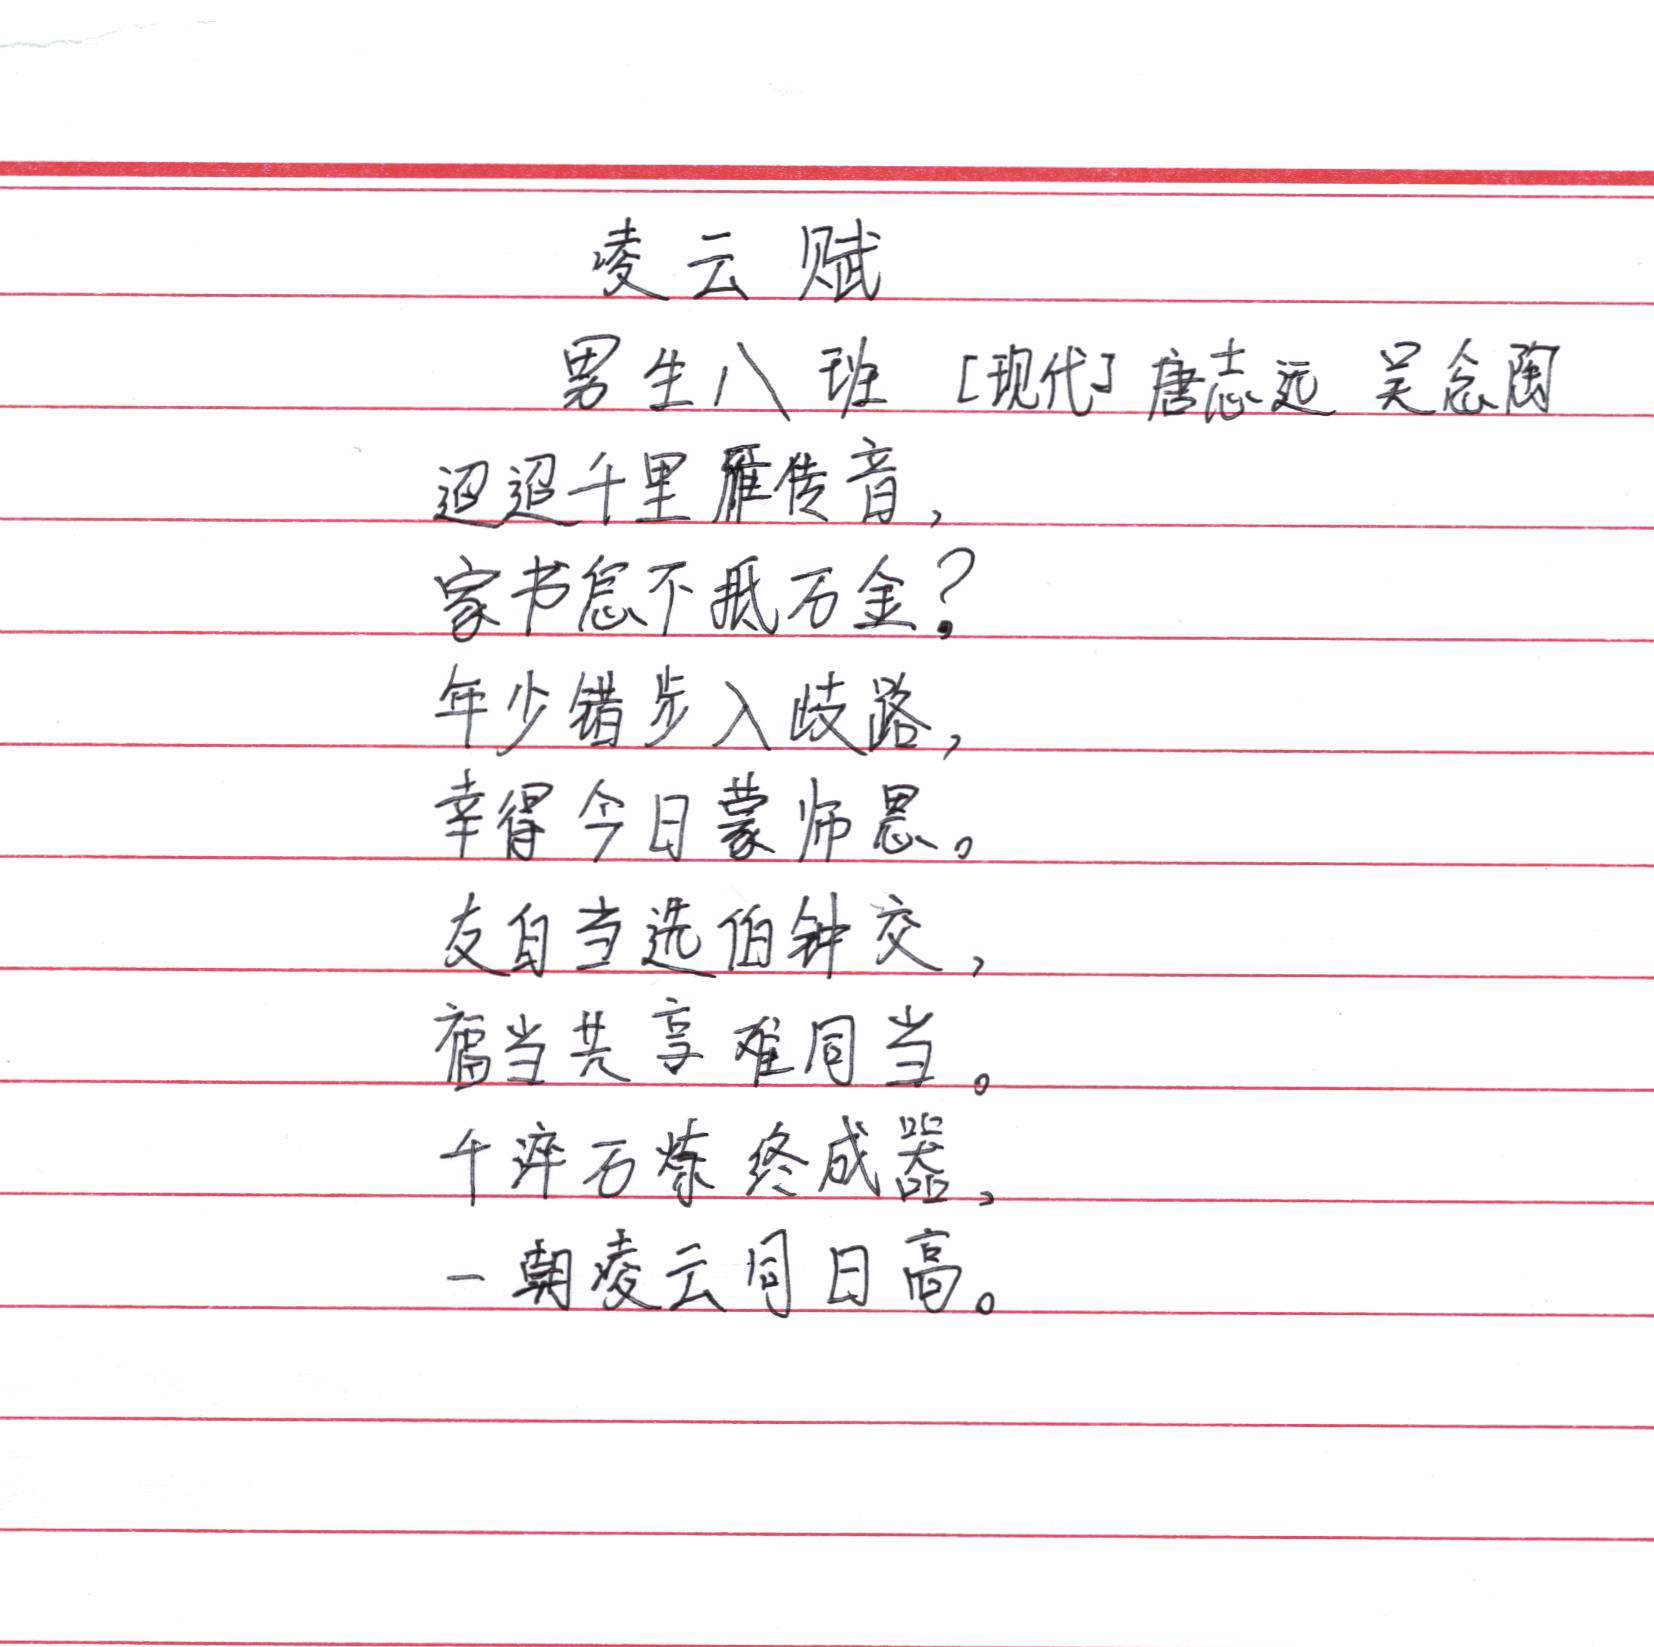 凌云赋
男生八班 [现代] 唐志远 吴念陶
迢迢千里雁传音，
家书怎不抵万金？
年少错步入歧路，
幸得今日蒙师恩。
友自当选伯钟交，
福当共享难同当。
千淬万炼终成器，
一朝凌云同日高。